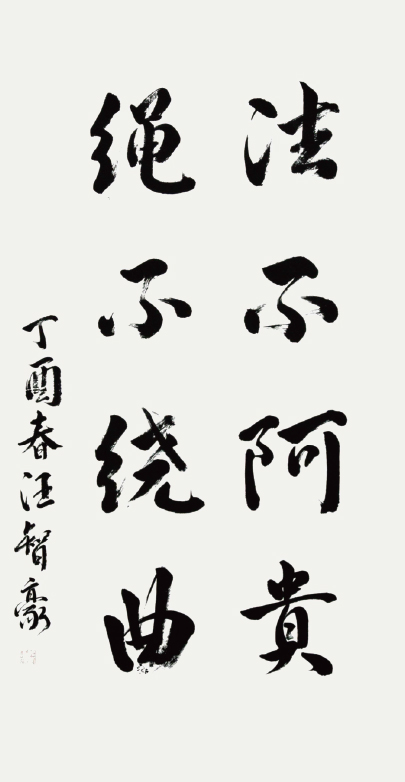 法不阿贵
绳不绕曲
丁酉春汪智豪